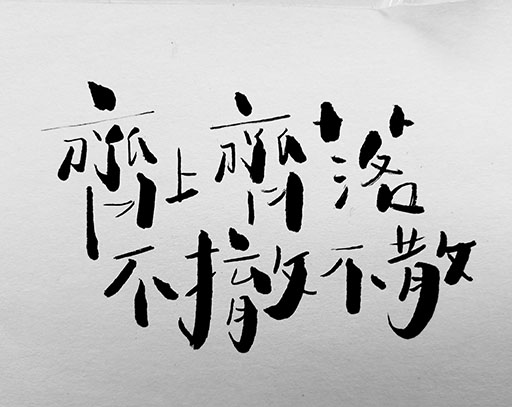 齊上齊落
不撤不散